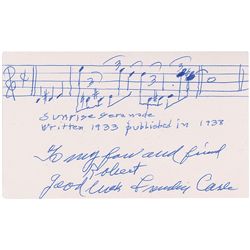 3 3
Sunrise Serenade
Written 1933 published in 1938
To my fan and friend
Robert
Good luck Frankie Carle